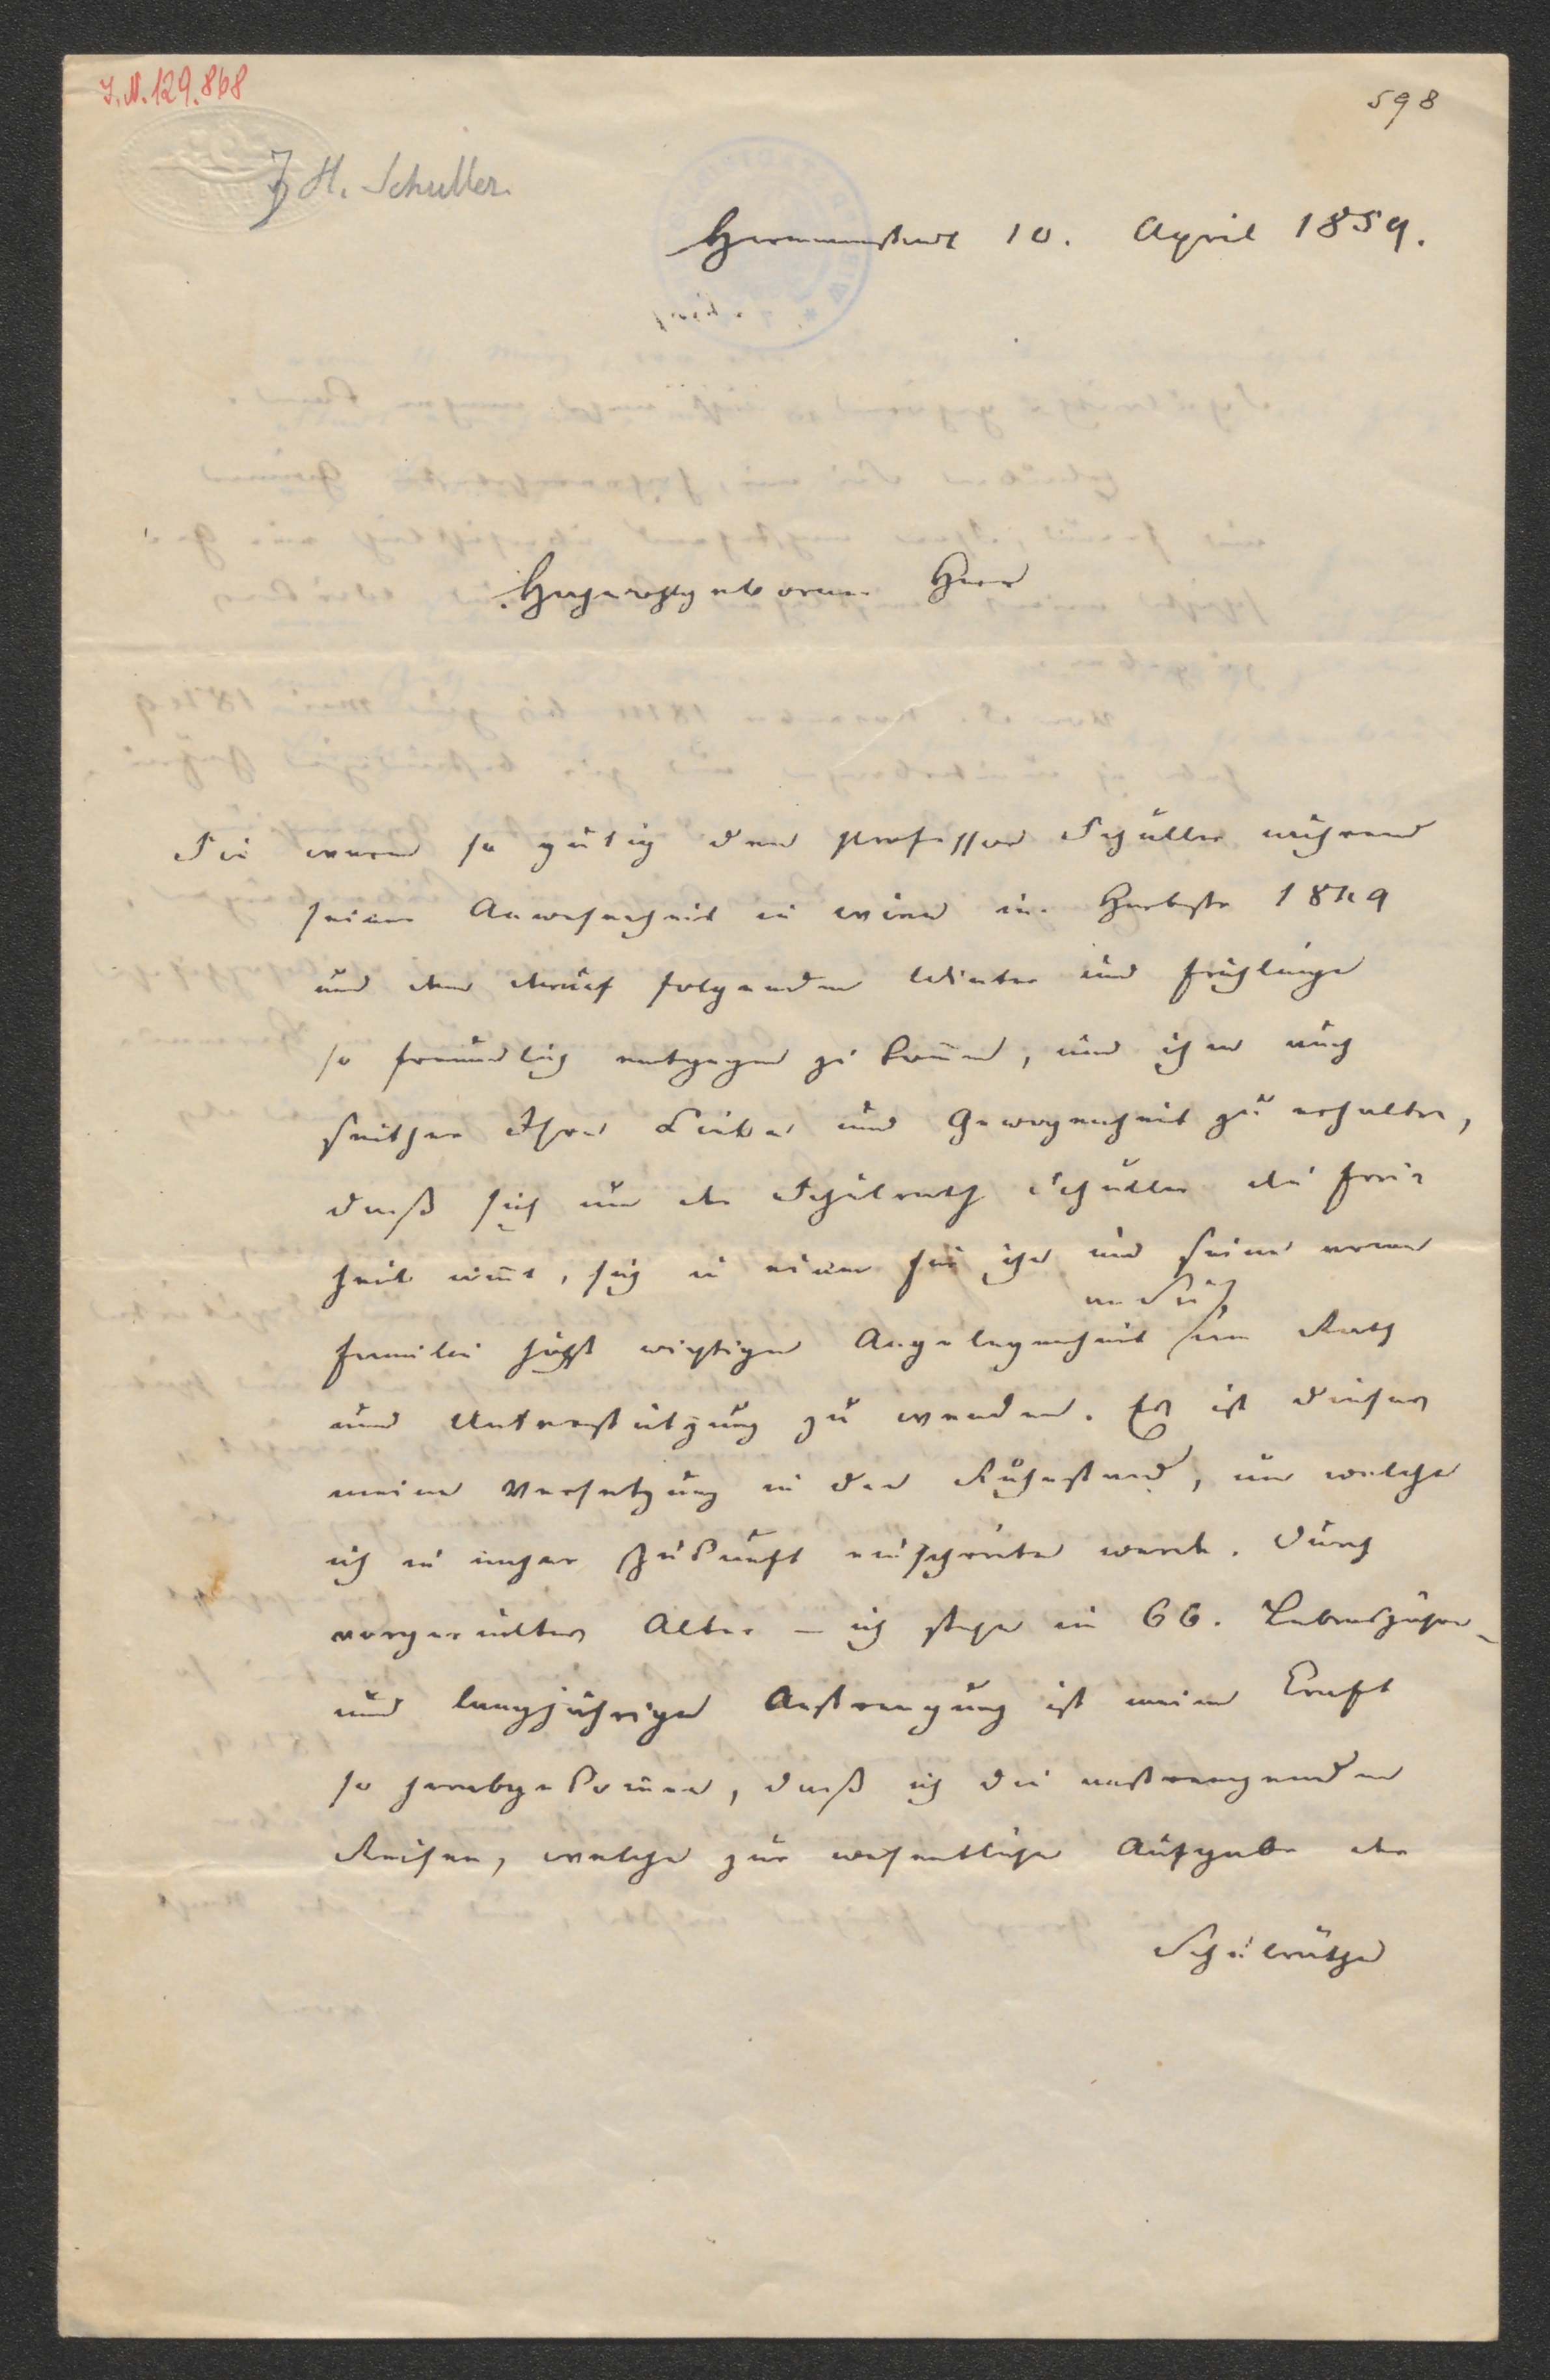 I.N. 129.868
598
J H. Schuller.
Hermannstadt 10. April 1859.
Hochwohlgeborner Herr
Sie waren so gütig dem Professor Schuller während
seiner Anwesenheit in Wien im Herbste 1849
und dem darauf folgenden Winter und Frühlinge
so freundlich entgegen zu kom̅en, und ihm auch
seither Ihre Liebe und Gewogenheit zu erhalten,
daß sich nun der Schulrath Schuller die Frei-
heit nim̅t, sich in einer für ihn und seine arme
Familie höchst wichtigen Angelegenheit
an Sie
um Rath
und Unterstützung zu wenden. Es ist dieses
meine Versetzung in den Ruhestand, um welche
ich in naher Zukunft einschreiten werde. Durch
vorgerücktes Alter – ich stehe im 66. Lebensjahre –
und langjährige Anstrengung ist meine Kraft
so herabgekom̅en, daß ich die anstrengenden
Reisen, welche zur wesentlichen Aufgabe der
Schulräthe